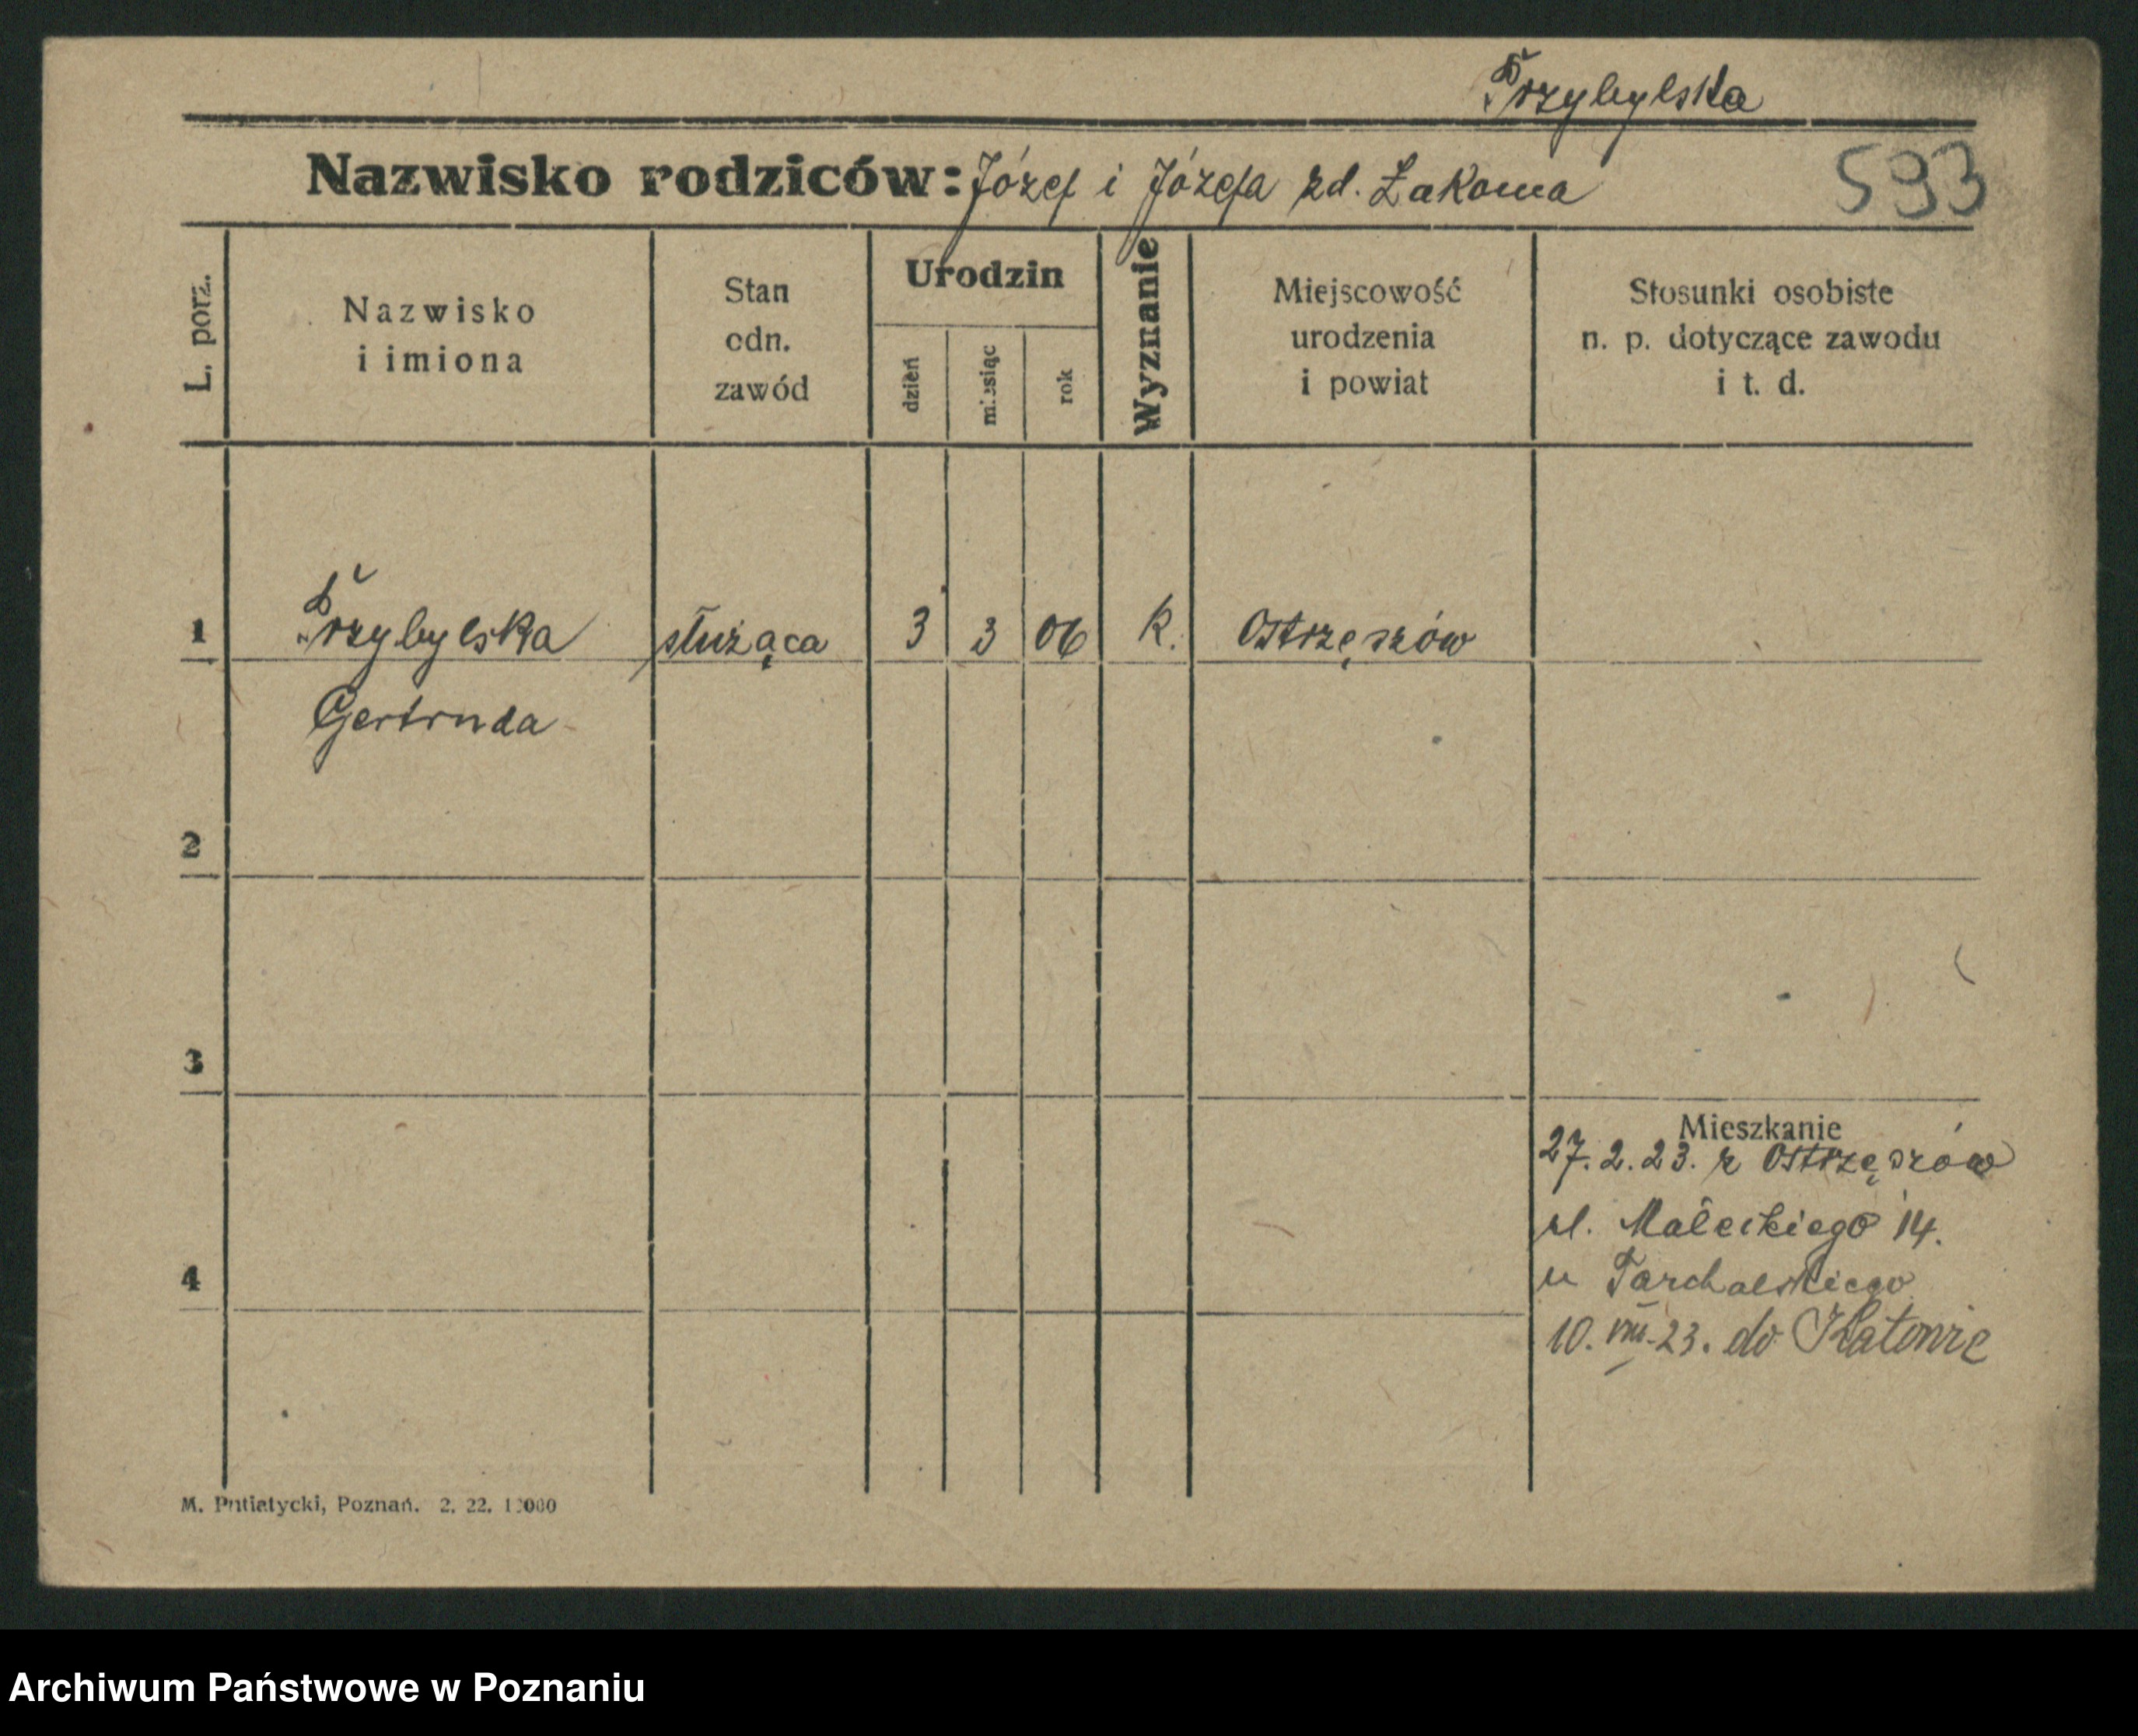 Przybylska
Nazwisko rodziców: Józef i Józefa zd. Łakoma
593
L. porz.
Nazwisko
i imiona
Stan
odn.
zawód
Urodzin
dzień
miesiąc
rok
Wyznanie
Miejscowość
urodzenia
i powiat
Stosunki osobiste
n. p. dotyczące zawodu
i t. d.
1 Przybylska służąca 3 3 06 K. Ostrzęszów
Gertruda
2
3
Mieszkanie
27.2.23. z Ostrzęszów
ul. Małeckiego 14.
4
u Tarchalskiego
10. VIII. 23. do Katowic
M. Putiatycki, Poznań. 2. 22.
Archiwum Państwowe w Poznaniu